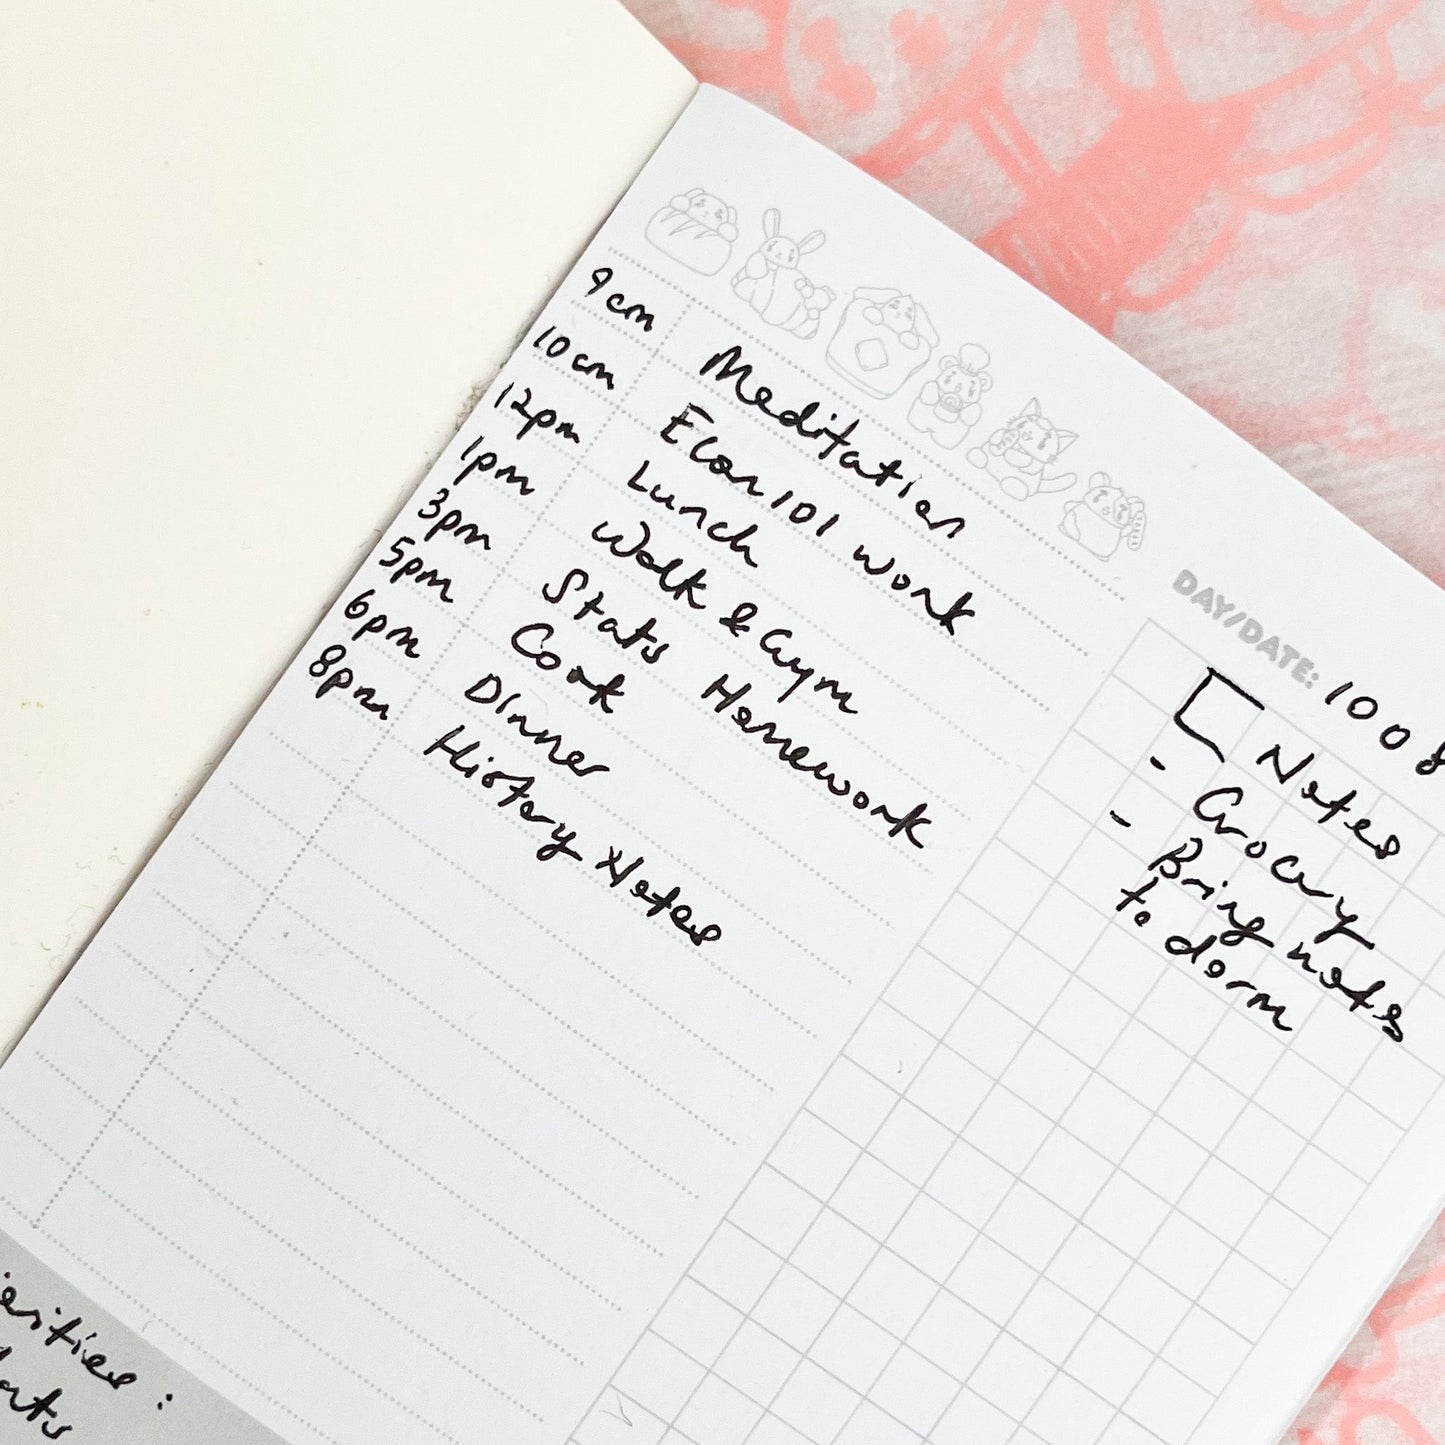 9am Meditation
10am Econ 101 work
12pm Lunch
1pm Walk & Gym
3pm Stats Homework
5pm Cook
6pm Dinner
8pm History Notes
DAY/DATE: 1008
Notes
- Grocery
- Bring notes
to dorm